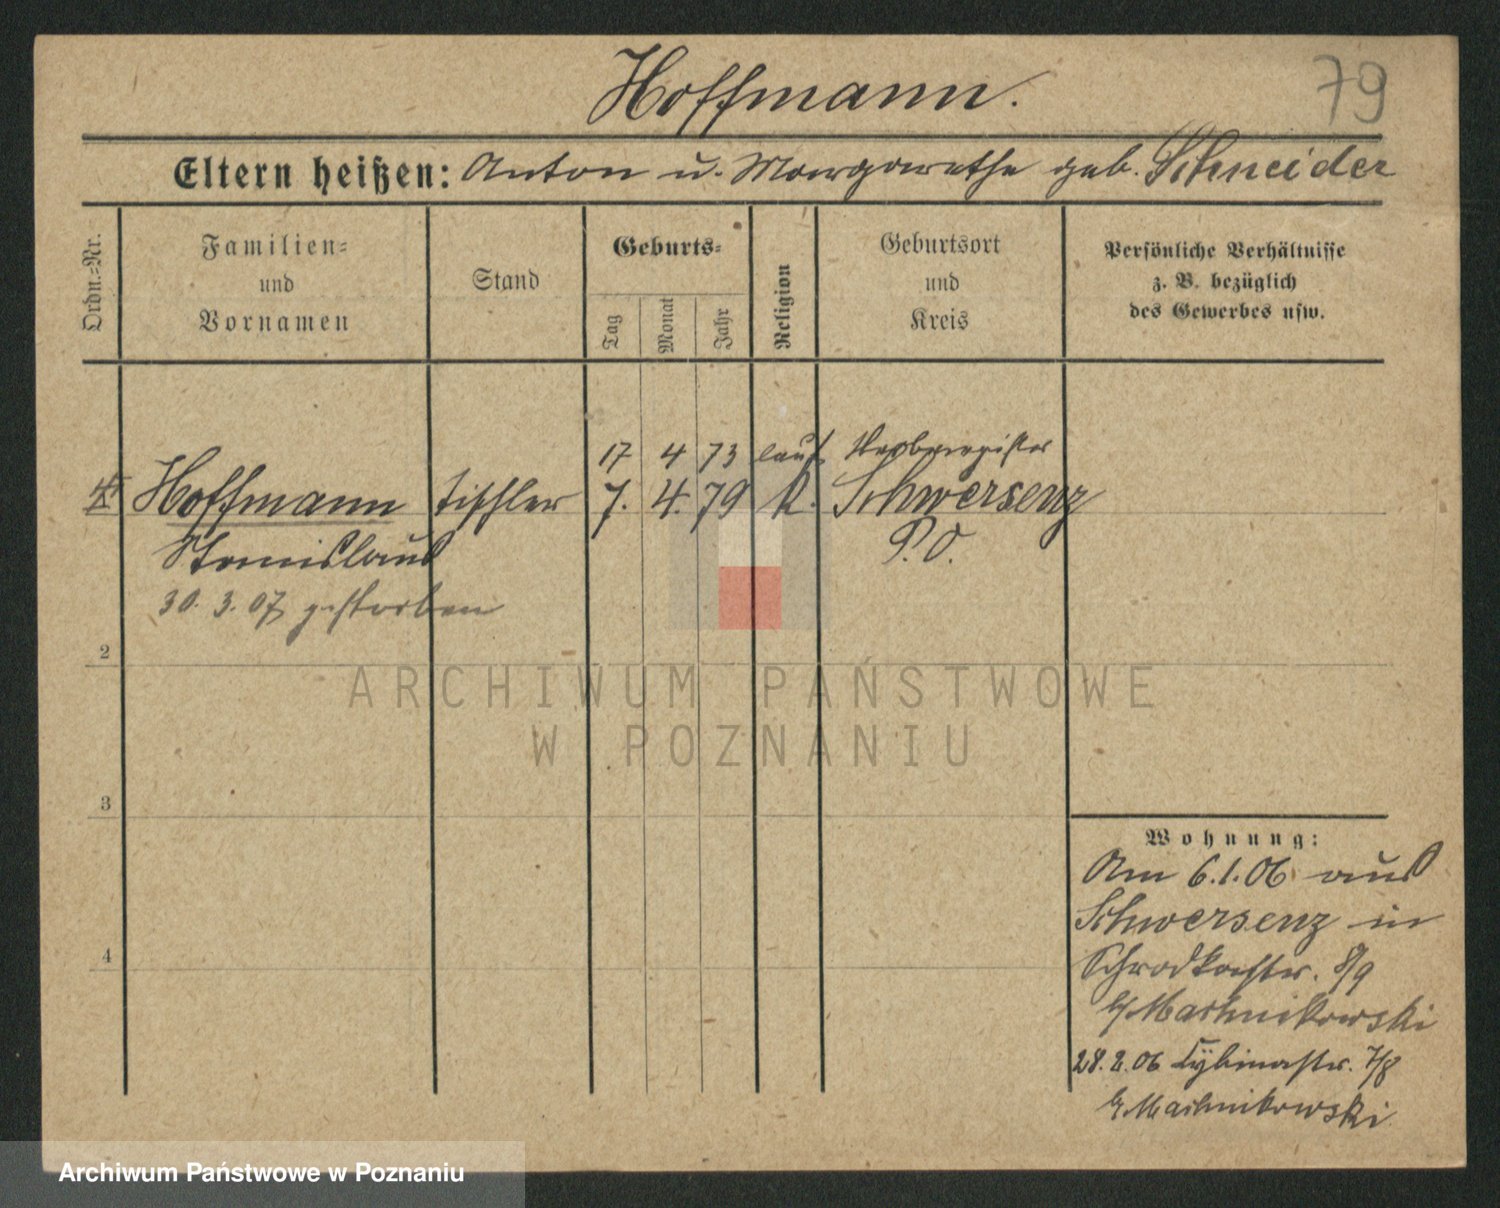 Hoffmann.
79
Eltern heißen: Anton u. Margarethe geb. Schneider
Ordn.-Nr.
Familien-
und
Vornamen
Stand
Geburts-
Tag
Monat
Jahr
Religion
Geburtsort
und
Kreis
Persönliche Verhältnisse
z. B. bezüglich
des Gewerbes usw.
17 4 73 laut Sterberegister
Hoffmann Tischler 7. 4. 79 K. Schwersenz
Stanislaus P. O.
30. 3. 07 gestorben
2
3
4
Wohnung:
Am 6.1.06 aus
Schwersenz in
Schrodkastr. 8/9
b/ Machnikowski
28. 2. 06 Cybinastr. 7/8
b. Machnikowski
ARCHIWUM PAŃSTWOWE
W POZNANIU
Archiwum Państwowe w Poznaniu